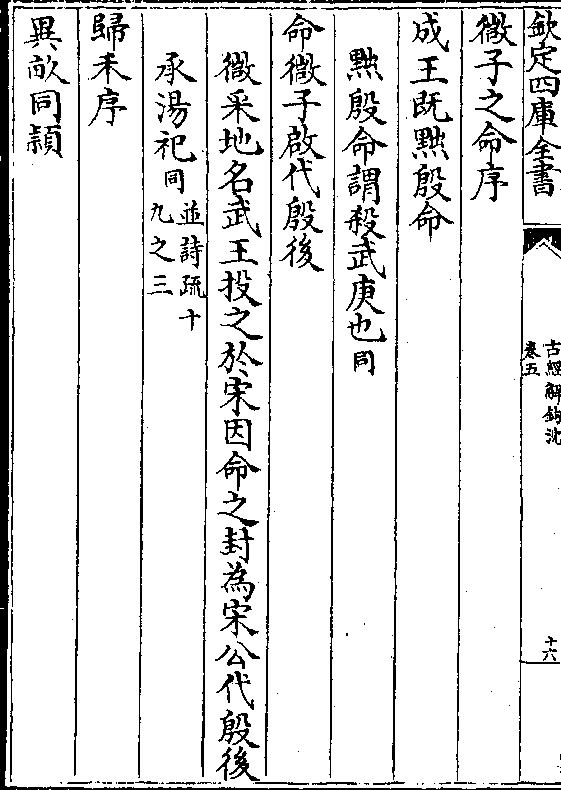 欽定四庫全書
古經解鉤沈
卷五
十六
微子之命序
成王既黜殷命
黜殷命謂殺武庚也同
命微子啟代殷後
微采地名武王投之於宋因命之封為宋公代殷後
承湯祀同並詩疏十
九之三
歸禾序
異畝同穎